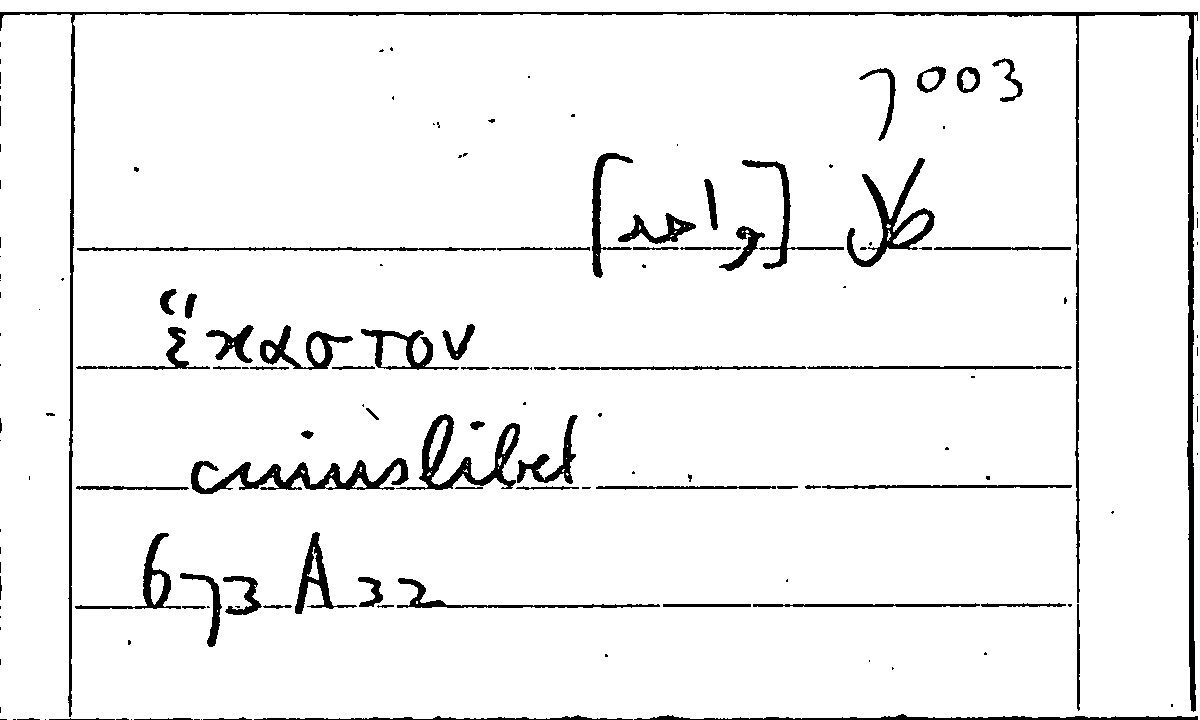 7003
[واحد]
ἕκαστον
cuiuslibet
673 A 32